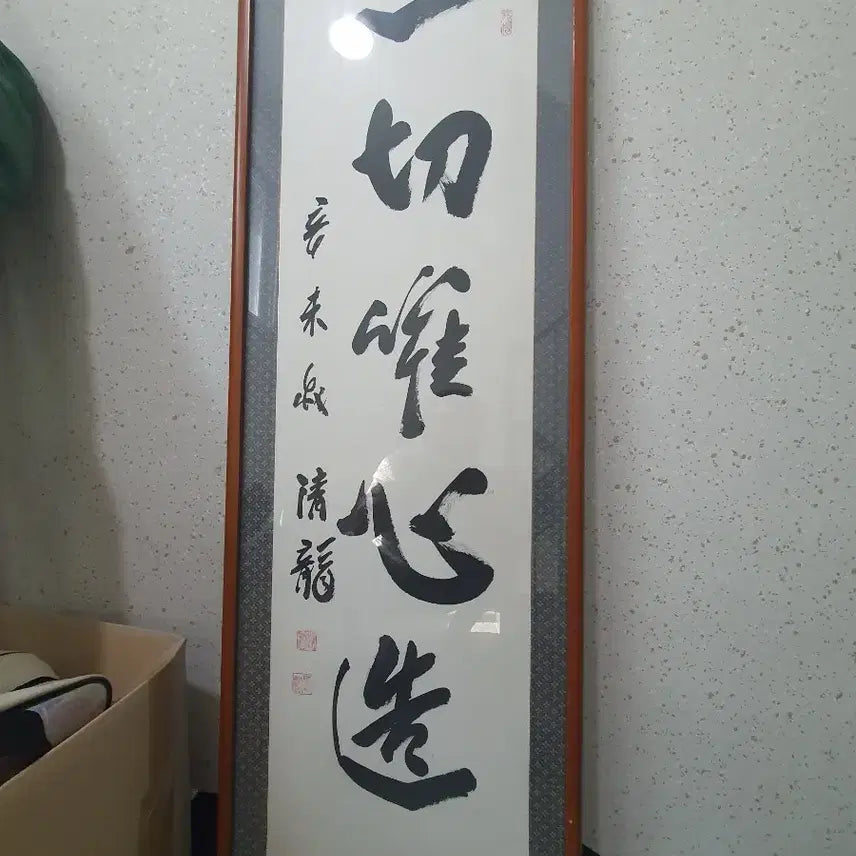 一切唯心造
辛未秋 清龍